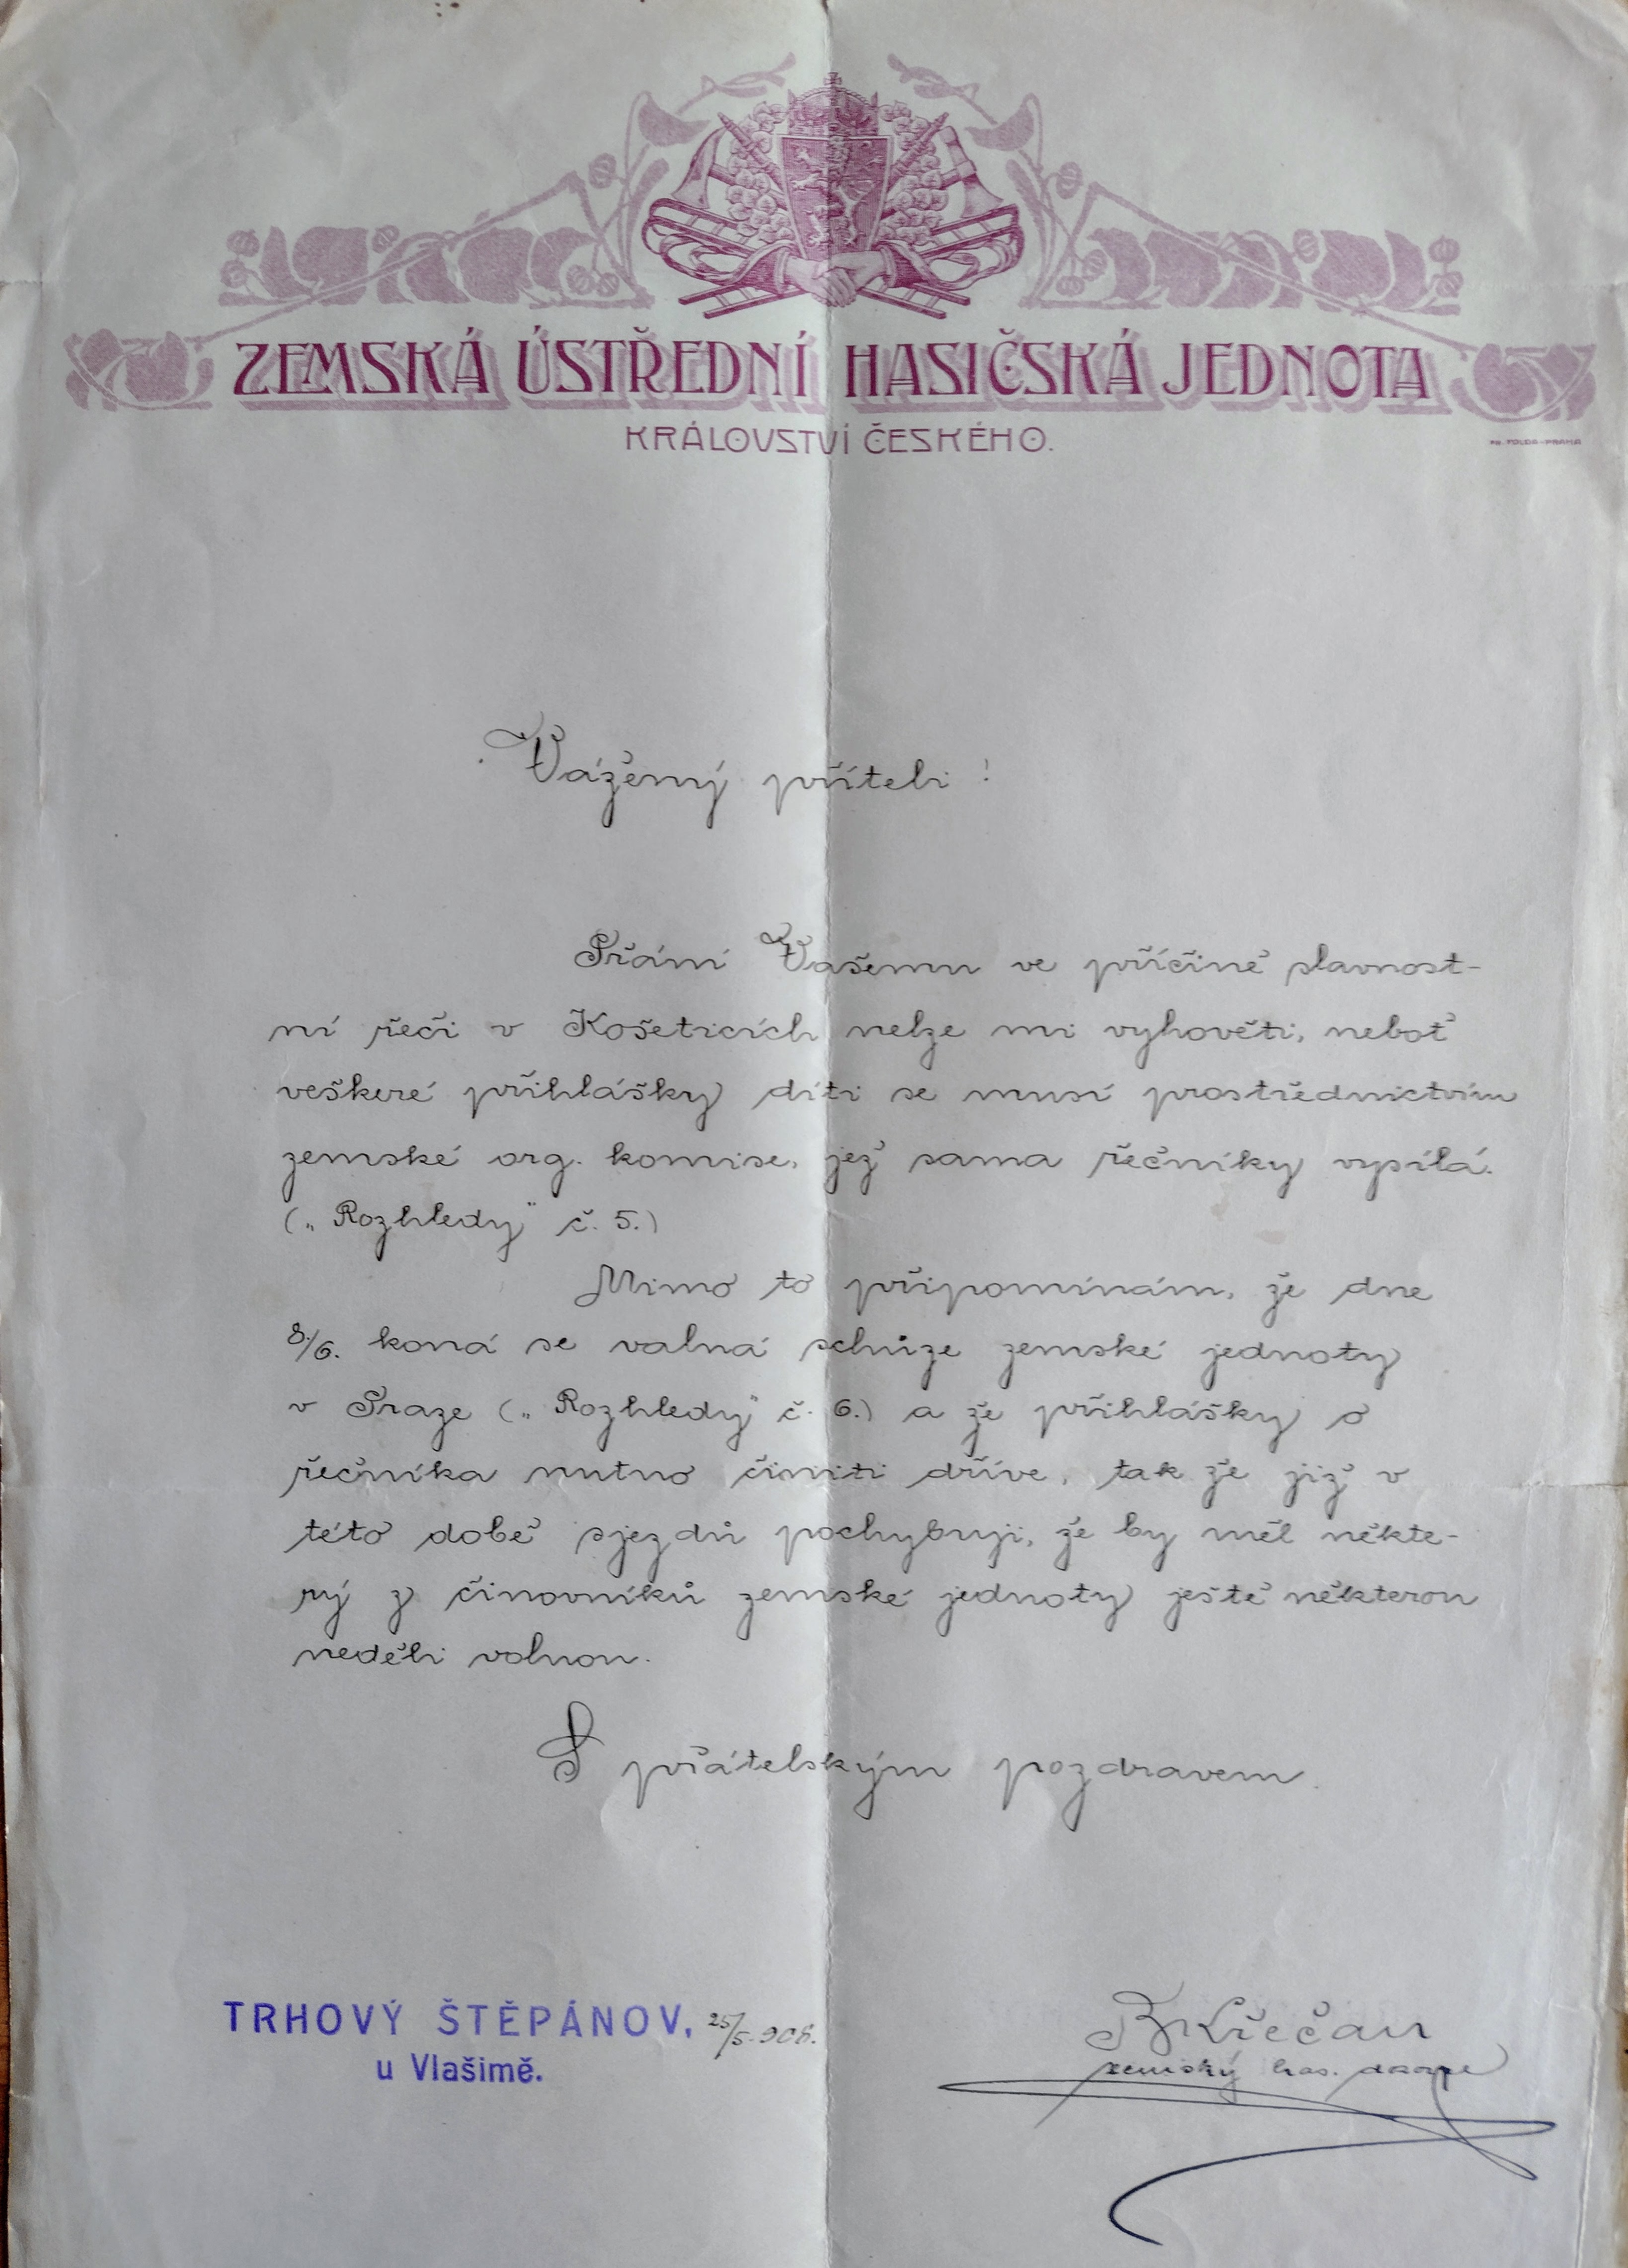 ZEMSKÁ ÚSTŘEDNÍ HASIČSKÁ JEDNOTA
KRÁLOVSTVÍ ČESKÉHO.
Vážený příteli!
Přání Vašemu ve příčině slavnost-
ní řeči v Košeticích nelze mi vyhověti, neboť
veškeré přihlášky díti se musí prostřednictvím
zemské org. komise, jež sama řečníky vysílá.
(„Rozhledy" č. 5.)
Mimo to připomínám, že dne
8./6. koná se valná schůze zemské jednoty
v Praze („Rozhledy" č. 6.) a že přihlášky o
řečníka nutno činiti dříve, tak že již v
této době sjezdů pochybuji, že by měl někte-
rý z činovníků zemské jednoty ještě některou
neděli volnou.
S přátelským pozdravem
TRHOVÝ ŠTĚPÁNOV, 25/5. 908.
u Vlašimě.
Křečan
zemský has. dozorce